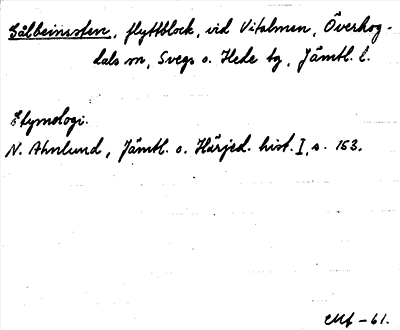 Gålbeinssten, flyttblock, vid Vitalmen, Överhog-
dals sn, Svegs o. Hede tg, Jämtl. l.
Etymologi.
N. Ahnlund, Jämtl. o. Härjed. hist. I, s. 163.
-61.